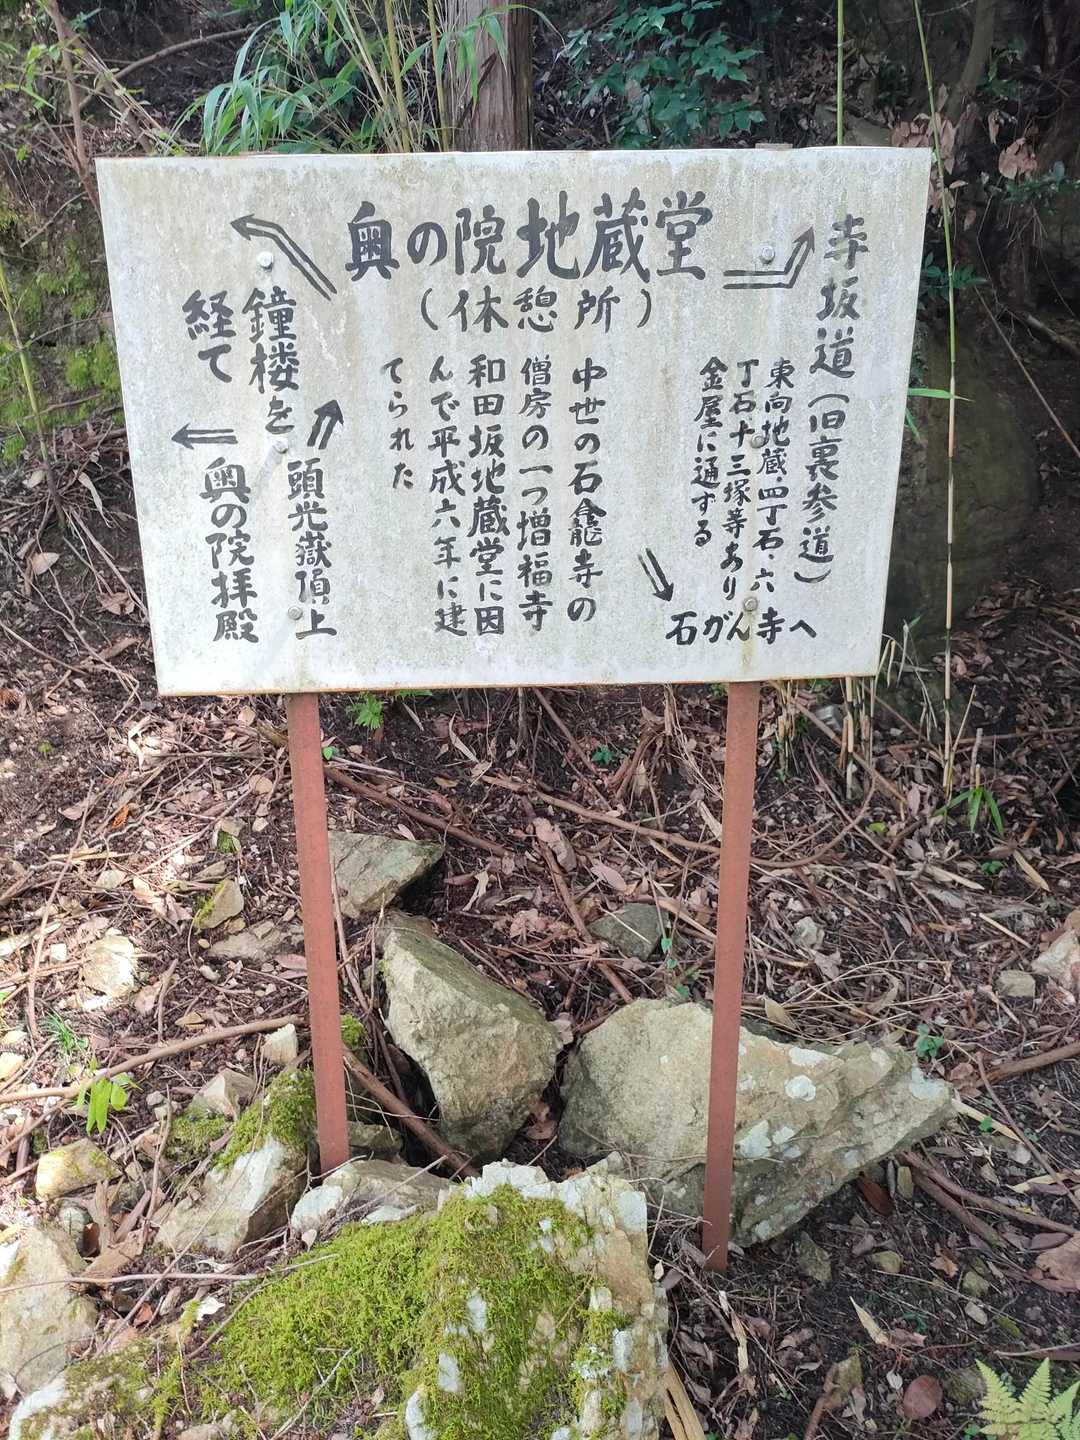 奥の院地蔵堂
（休憩所）
寺坂道（旧裏参道）
東向地蔵・四丁石・六
丁石十三塚等あり
金屋に通ずる
石がん寺へ
中世の石龕寺の
僧房の一つ増福寺
和田坂地蔵堂に因
んで平成六年に建
てられた
鐘楼を
経て
頭光嶽頂上
奥の院拝殿